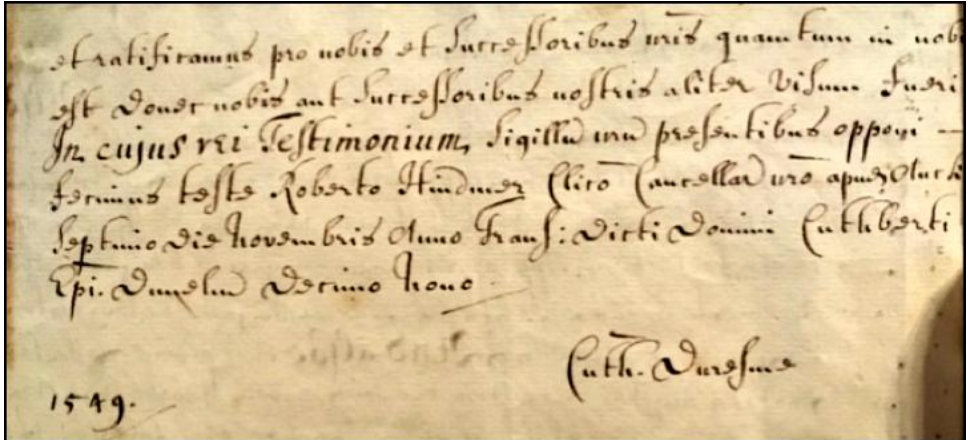 et ratificamus pro nobis et Successoribus nr̃is quamtum in nob
est Donec nobis aut Successoribus nostris aliter Visum fueri
In cujus rei Testimonium, Sigillũ nrũ presentibus opponi —
fecimus teste Roberto Hindmer Clico Cancellar̃ nr̃o apud
Septimo Die Novembris Anno Transl: Dicti Domini Cuthberti
Epi. Dunelm̃ Decimo Nono
Cuth. Duresme
1549.